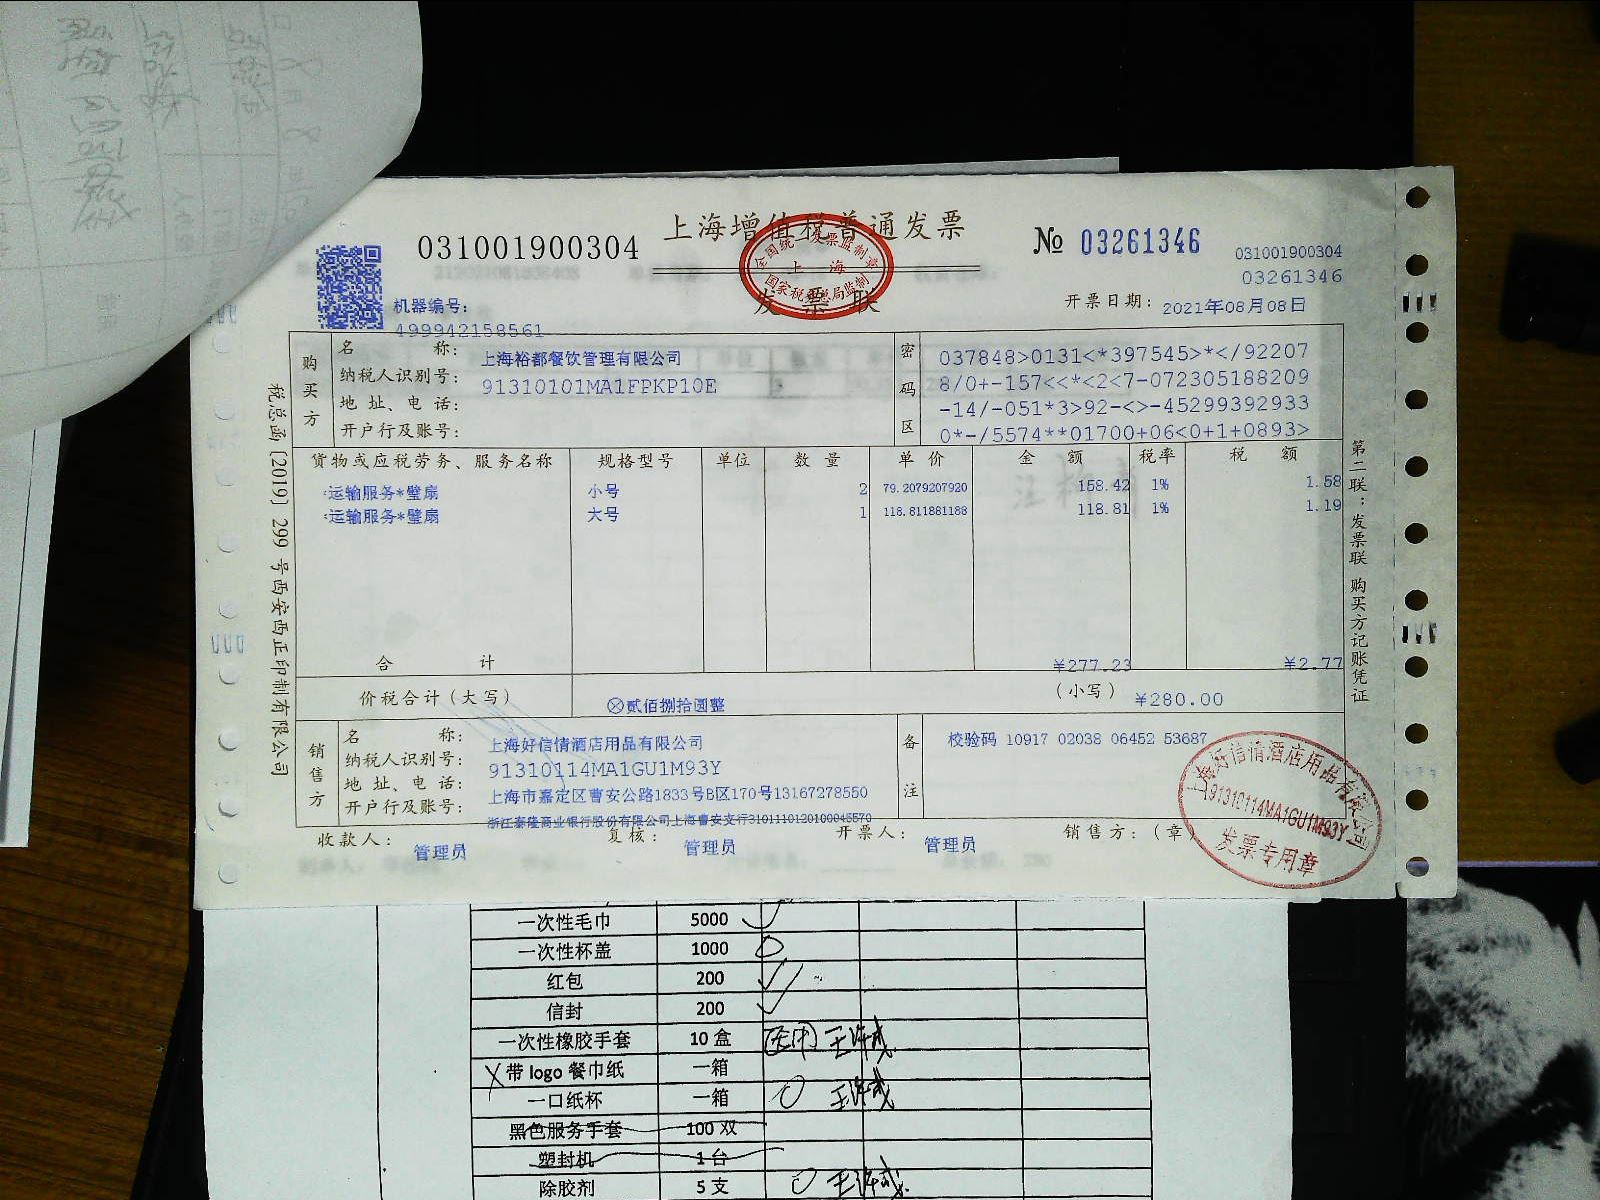 上海增值税普通发票
发票联
031001900304
№ 03261346
031001900304
03261346
机器编号:
499942158561
开票日期: 2021年08月08日
全国统一发票监制章
上海
国家税务总局监制
购买方
名 称: 上海裕都餐饮管理有限公司
纳税人识别号: 91310101MA1FPKP10E
地 址、电 话:
开户行及账号:
密码区
037848>0131<*397545>*</92207
8/0+-157<<*<2<7-072305188209
-14/-051*3>92-<>-45299392933
0*-/5574**01700+06<0+1+0893>
货物或应税劳务、服务名称 规格型号 单位 数 量 单 价 金 额 税率 税 额
*运输服务*壁扇 小号 2 79.2079207920 158.42 1% 1.58
*运输服务*壁扇 大号 1 118.811881188 118.81 1% 1.19
合 计 ¥277.23 ¥2.77
价税合计(大写) ⊗贰佰捌拾圆整 (小写) ¥280.00
销售方
名 称: 上海好信情酒店用品有限公司
纳税人识别号: 91310114MA1GU1M93Y
地 址、电 话: 上海市嘉定区曹安公路1833号B区170号13167278550
开户行及账号: 浙江泰隆商业银行股份有限公司上海曹安支行3101110120100045570
备注
校验码 10917 02038 06452 53687
收款人: 管理员 复核: 管理员 开票人: 管理员 销售方:(章)
上海好信情酒店用品有限公司
91310114MA1GU1M93Y
发票专用章
税总函[2019] 299 号西安西正印制有限公司
第二联:发票联 购买方记账凭证
一次性毛巾 5000
一次性杯盖 1000
红包 200
信封 200
一次性橡胶手套 10 盒
带 logo 餐巾纸 一箱
一口纸杯 一箱
黑色服务手套 100 双
塑封机 1 台
除胶剂 5 支